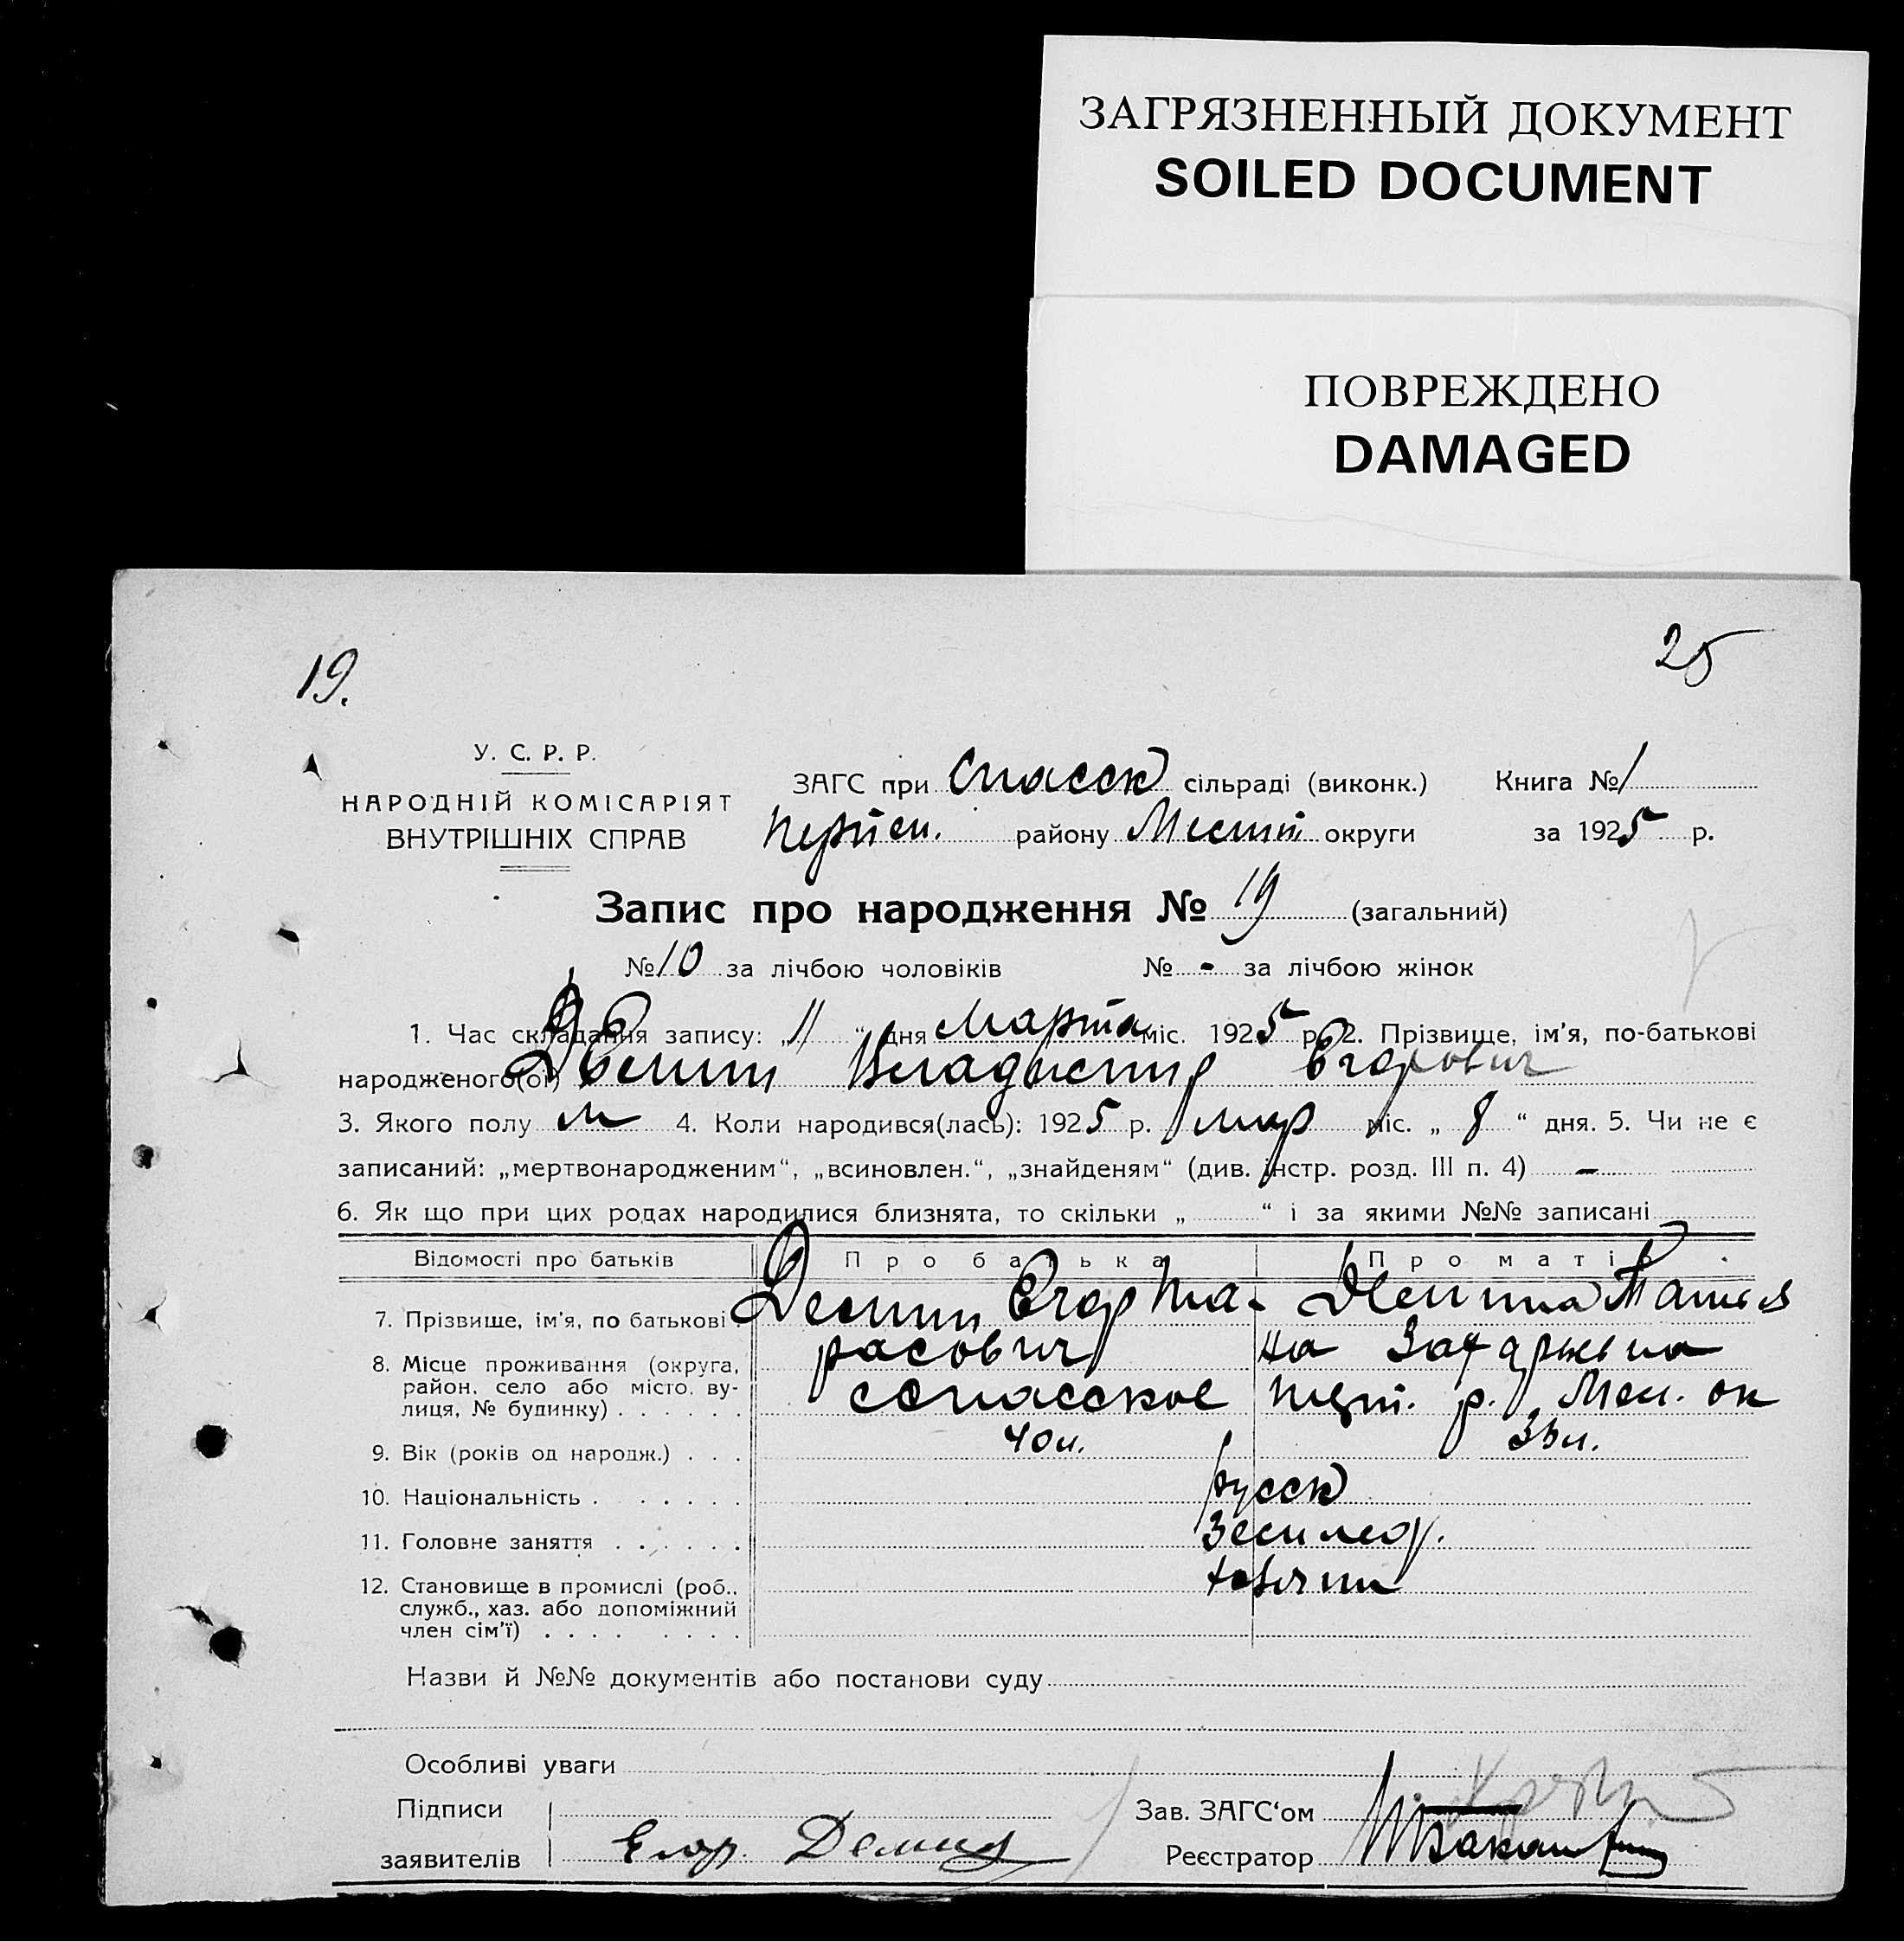 ЗАГРЯЗНЕННЫЙ ДОКУМЕНТ
SOILED DOCUMENT
ПОВРЕЖДЕНО
DAMAGED
19.
25
У. С. Р. Р.
НАРОДНІЙ КОМІСАРІЯТ
ВНУТРІШНІХ СПРАВ
ЗАГС при Спасск сільраді (виконк.) Книга № 1
району округи за 1925 р.
Запис про народження № 19 (загальний)
№ 10 за лічбою чоловіків № - за лічбою жінок
1. Час складання запису: „11“ дня Марта міс. 1925 р. 2. Прізвище, ім'я, по-батькові
народженого(ої) Демин Владимир Егорович
3. Якого полу м 4. Коли народився(лась): 1925 р. мар міс. „8“ дня. 5. Чи не є
записаний: „мертвонародженим“, „всиновлен.“, „знайденям“ (див. інстр. розд. III п. 4) -
6. Як що при цих родах народилися близнята, то скільки „ “ і за якими №№ записані
Відомості про батьків Про батька Про матір
7. Прізвище, ім'я, по батькові Демин Егор Та- Демина
расович на Захарьевна
8. Місце проживання (округа, район, село або місто, ву-
лиця, № будинку) Спасское р. Мел. ок
9. Вік (років од народж.) 40 л. 35 л.
10. Національність русск
11. Головне заняття землед.
12. Становище в промислі (роб.,
служб., хаз. або допоміжний
член сім'ї)
Назви й №№ документів або постанови суду
Особливі уваги
Підписи Зав. ЗАГС'ом
заявителів Егор Демин Реєстратор